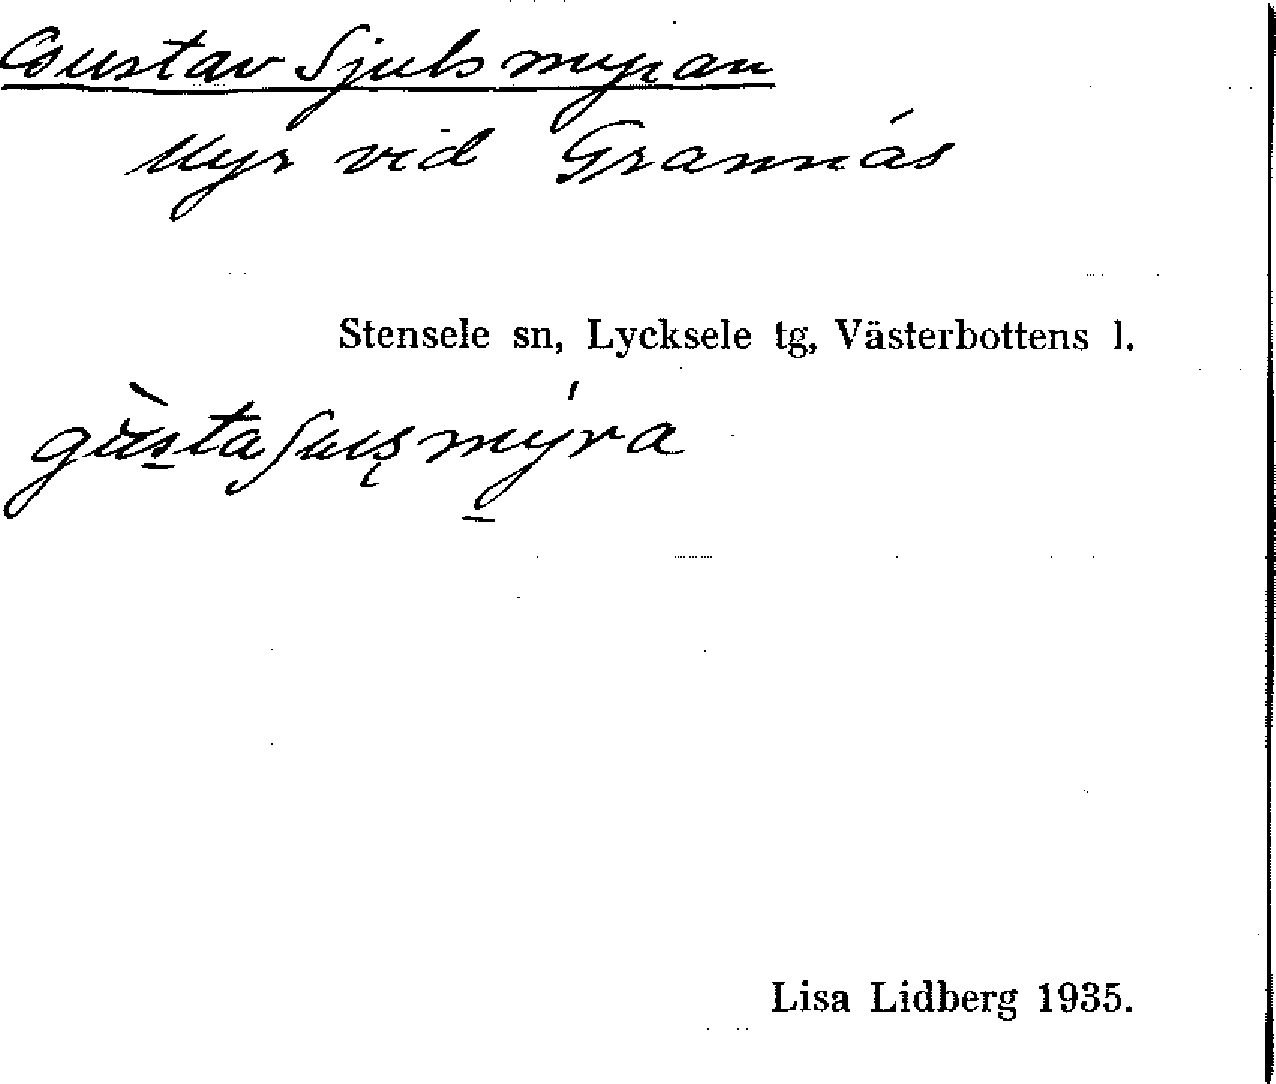 Gustav Sjulsmyran
Myr vid Grannäs
Stensele sn, Lycksele tg, Västerbottens l.
Lisa Lidberg 1935.